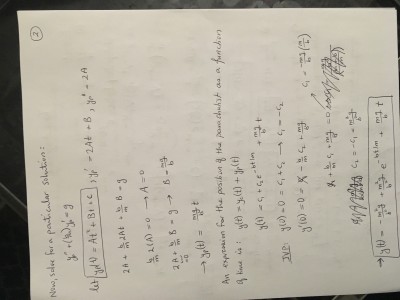 ②
Now, solve for a particular solution:
yp'' + (b/m) yp' = g
let yp(t) = At² + Bt + C, yp' = 2At + B, yp'' = 2A
2A + b/m 2At + b/m B = g
b/m 2(A) = 0 → A = 0
2A + b/m B = g → B = mg/b
=0
→ yp(t) = mg/b t
An expression for the position of the parachutist as a function
of time is: y(t) = yh(t) + yp(t)
y(t) = c₁ + c₂e^-bt/m + mg/b t
IVP: y(0) = 0 = c₁ + c₂ → c₁ = -c₂
y'(0) = 0 = -b/m c₂ + mg/b
b/m c₁ + mg/b = 0
c₁ = -mg/b (m/b)
c₂ = -c₁ = m²g/b²
→ y(t) = -m²g/b² + m²g/b² e^-bt/m + mg/b t